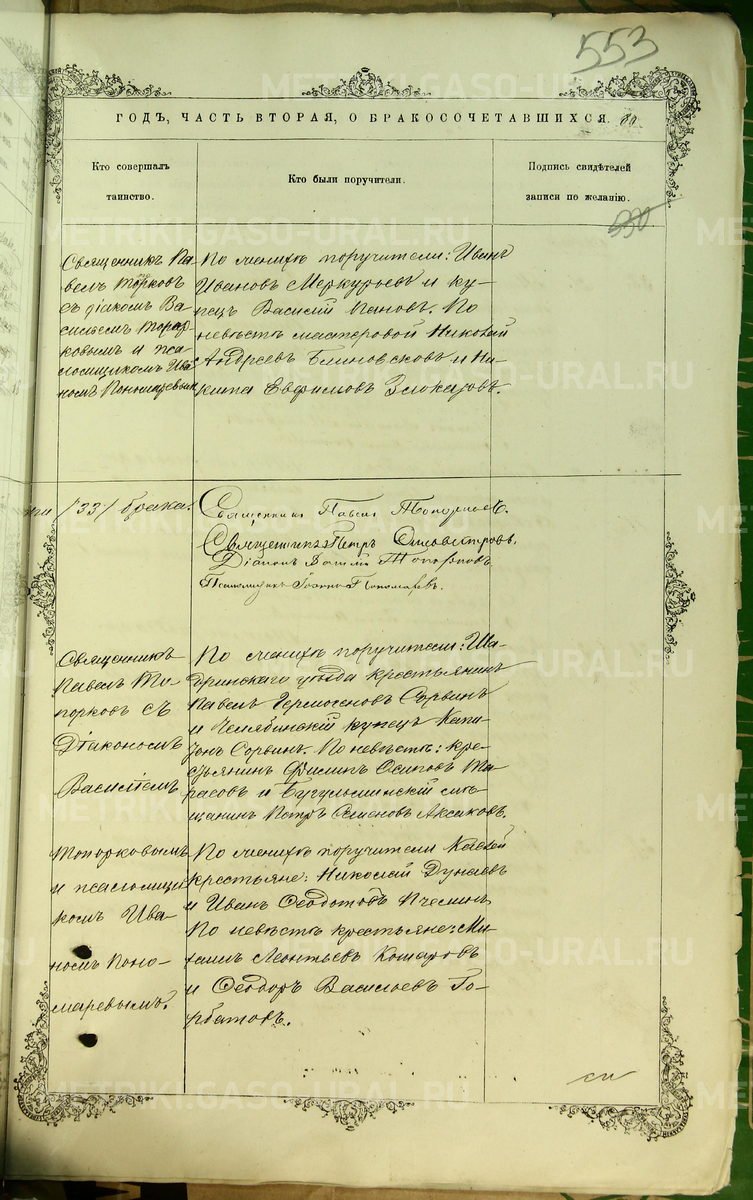 553
ГОДЪ, ЧАСТЬ ВТОРАЯ, О БРАКОСОЧЕТАВШИХСЯ.
Кто совершалъ
таинство.
Кто были поручители.
Подпись свидѣтелей
записи по желанію.
330
Священникъ Па-
велъ Топорковъ
съ діакономъ Ва-
сильемъ Топор-
ковымъ и пса-
ломщикомъ Ива-
номъ Пономаревымъ
По женихѣ поручители: Иванъ
Ивановъ Меркурьевъ и ку-
пецъ Василій Пановъ. По
невѣстѣ мастеровой Николай
Андреевъ Блиновсковъ и Ни-
кита Евфимовъ Злоказовъ.
/33/ брака.
Священникъ Павелъ Топорковъ.
Священникъ Петръ Сильвестровъ.
Діаконъ Василій Топорковъ.
Псаломщикъ Іоаннъ Пономаревъ.
Священникъ
Павелъ То-
порковъ съ
Діакономъ
Василіемъ
Топорковымъ
и псаломщи-
комъ Ива-
номъ Поно-
маревымъ.
По женихѣ поручители: Ша-
дринскаго уѣзда крестьянинъ
Павелъ Гермогеновъ Сорвинъ
и Челябинскій купецъ Капи-
тонъ Сорвинъ. По невѣстѣ: кре-
стьянинъ Филипъ Осиповъ Та-
расовъ и Бугульминскій мѣ-
щанинъ Петръ Семеновъ Аксаковъ.
По женихѣ поручители
крестьяне: Николай Дунаевъ
и Иванъ Ѳеодотовъ Пчелинъ
По невѣстѣ крестьяне: Ми-
хаилъ Леонтьевъ Кошаровъ
и Ѳеодоръ Васильевъ Гор-
батовъ.
METRIKI.GASO-URAL.RU